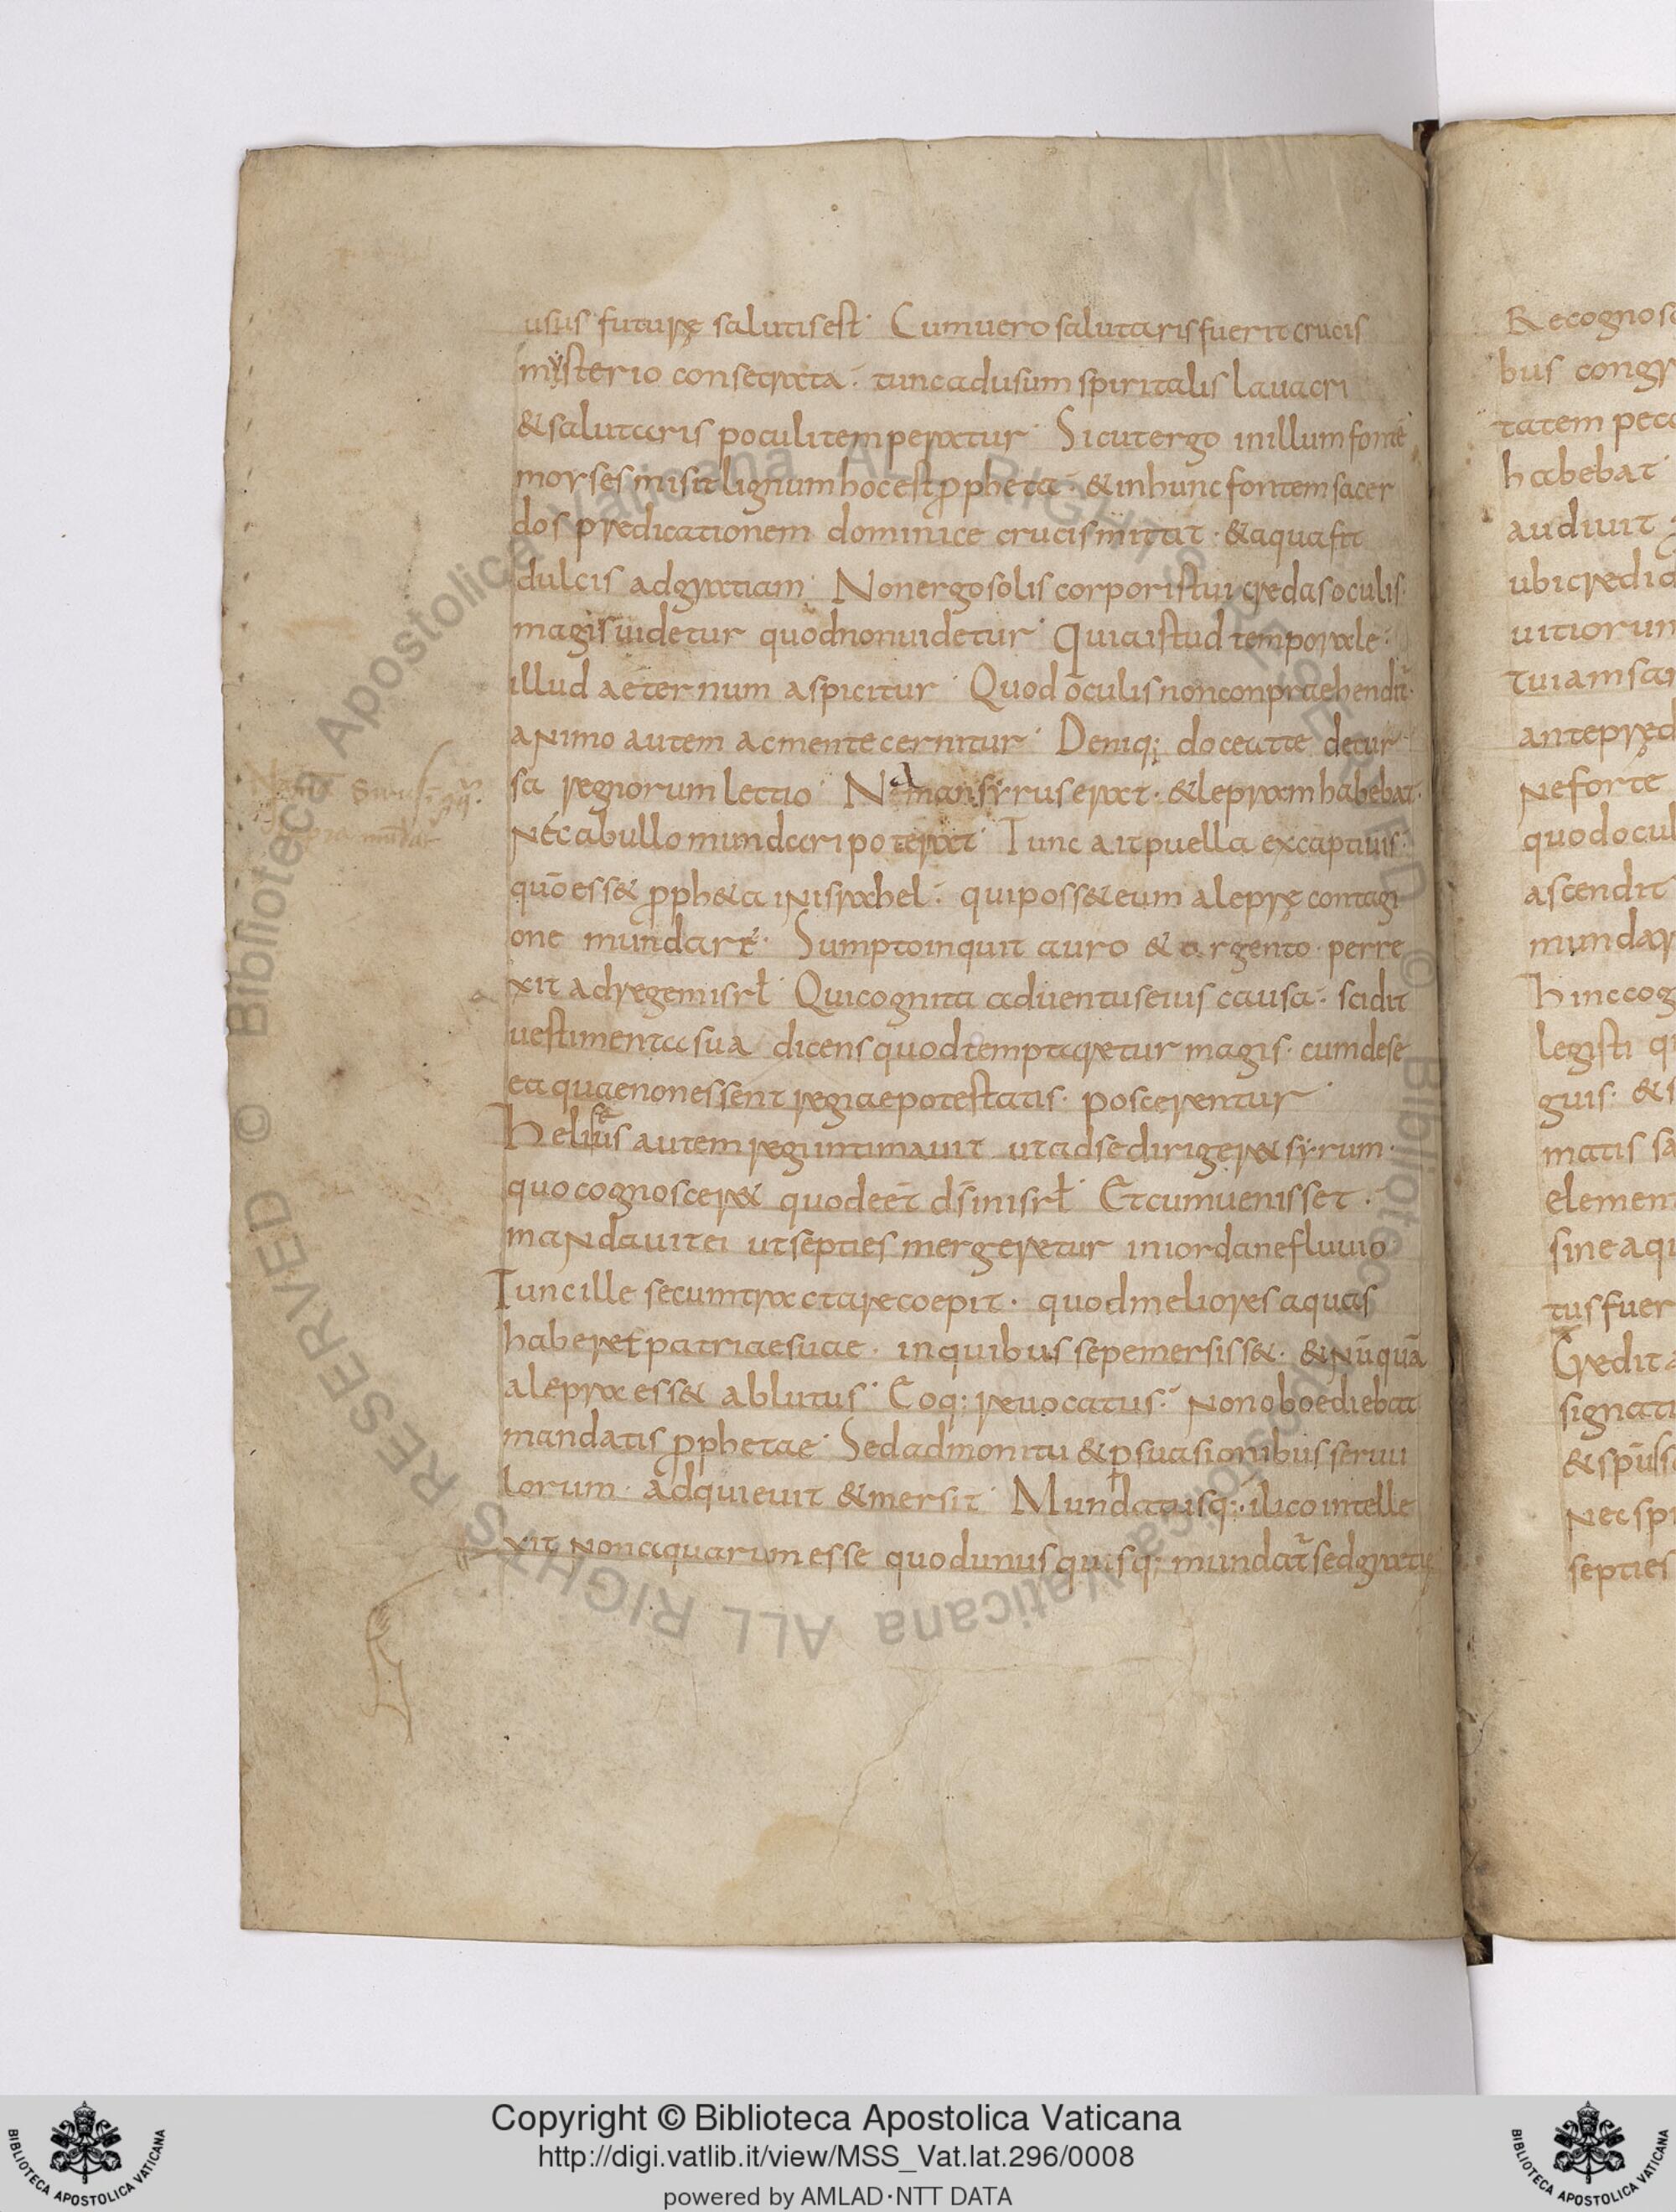 usus futurę salutis est· Cum uero salutaris fuerit crucis
mysterio consecrata· tunc ad usum spiritalis lauacri
& salutaris poculi temperatur· Sicut ergo in illum fontē
moyses misit lignum hoc est ppheta· & in hunc fontem sacer
dos predicationem dominice crucis mittat· & aqua fit
dulcis ad gratiam· Non ergo solis corporis tui credas oculis·
magis uidetur quod non uidetur· Quia istud temporale·
illud aeternum aspicitur· Quod oculis non conpraehendit̃·
animo autem ac mente cernitur· Deniq; doceat te decur
sa regnorum lectio· Neaman syrus erat· & lepram habebat·
nec ab ullo mundari poterat· Tunc ait puella ex captiuis·
quō ess& pph&a in israhel· qui poss& eum a leprę contagi
one mundare· Sumpto inquit auro & argento· perre
xit ad regem isrł· Qui cognita aduentus eius causa· scidit
uestimenta sua dicens quod temptaretur magis· cum de se
ea quae non essent regiae potestatis· poscerentur·
Helisęus autem regi intimauit ut ad se diriger& syrum·
quo cognoscer& quod eēt ds̄ in isrł· Et cum uenisset·
mandauit ei ut septies mergeretur in iordane fluuio
Tunc ille secum tractare coepit· quod meliores aquas
haberet patriae suae· in quibus sepe mersiss&· & nūquā
a lepra ess& ablutus· Eoq; reuocatus· non oboediebat
mandatis pphetae· Sed admonitu & psuasionibus seruu
lorum· adquieuit & mersit· Mundatusq; ilico intelle
xit non aquarum esse quod unusquisq; mundat̃ sed gratię
Recognosc
bus congr
tatem pecc
habebat·
audiuit
ubi credid
uitiorum
tui iam sa
ante pręd
ne forte
quod ocul
ascendit
mundar
Hinc cog
legisti q
guis· & s
matis sa
elemen
sine aqu
tus fuer
Credit a
signat
& spūs s
nec sp
septies
Copyright © Biblioteca Apostolica Vaticana
http://digi.vatlib.it/view/MSS_Vat.lat.296/0008
powered by AMLAD·NTT DATA
BIBLIOTECA APOSTOLICA VATICANA
BIBLIOTECA APOSTOLICA VATICANA
© Biblioteca Apostolica Vaticana ALL RIGHTS RESERVED © Biblioteca Apostolica Vaticana ALL RIGHTS RESERVED